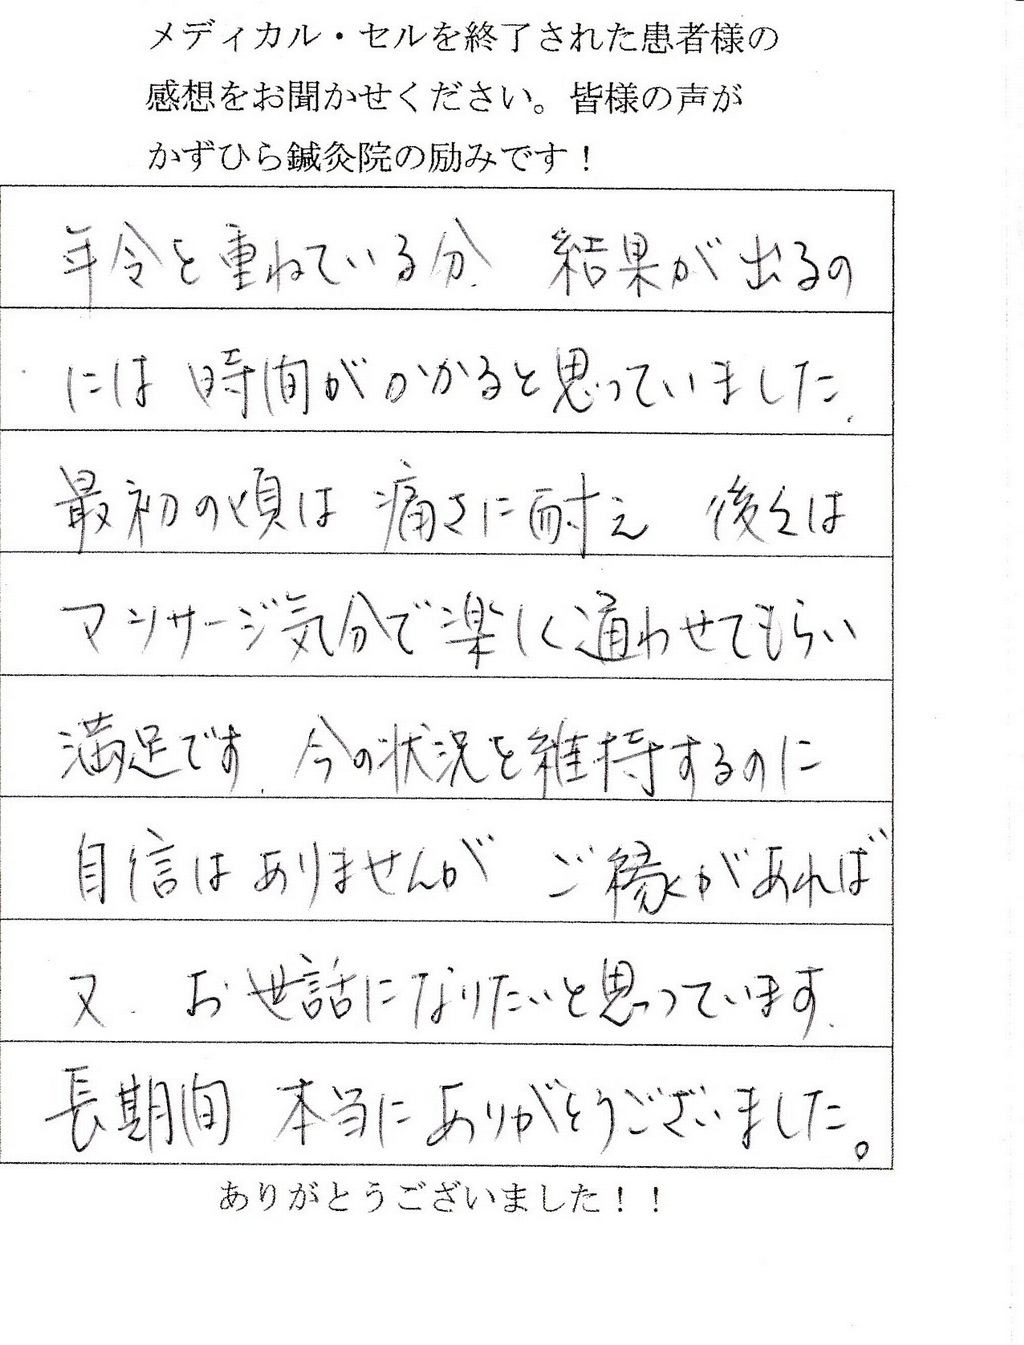 メディカル・セルを終了された患者様の
感想をお聞かせください。皆様の声が
かずひら鍼灸院の励みです！
年令を重ねている分、結果が出るの
には 時間がかかると思っていました。
最初の頃は 痛さに耐え 後々は
マンサージ気分で楽しく通わせてもらい
満足です。今の状況を維持するのに
自信はありませんが ご縁があれば
又、お世話になりたいと思っています。
長期間 本当にありがとうございました。
ありがとうございました！！